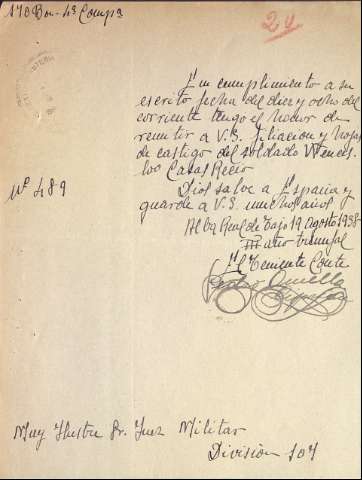 170 Bon - 4ª Compª
24
En cumplimiento a su
escrito fecha del diez y ocho del
corriente tengo el honor de
remitir a V.S. filiacion y hojas
de castigo del soldado Wences
lao Casas Recio
Nº 489
Dios salve a España y
guarde a V.S. muchos años
Alba Real de Tajo 19 Agosto 1938
III año triunfal
El Teniente Ccmte
Pedro
Muy Ilustre Sr. Juez Militar
Division 107